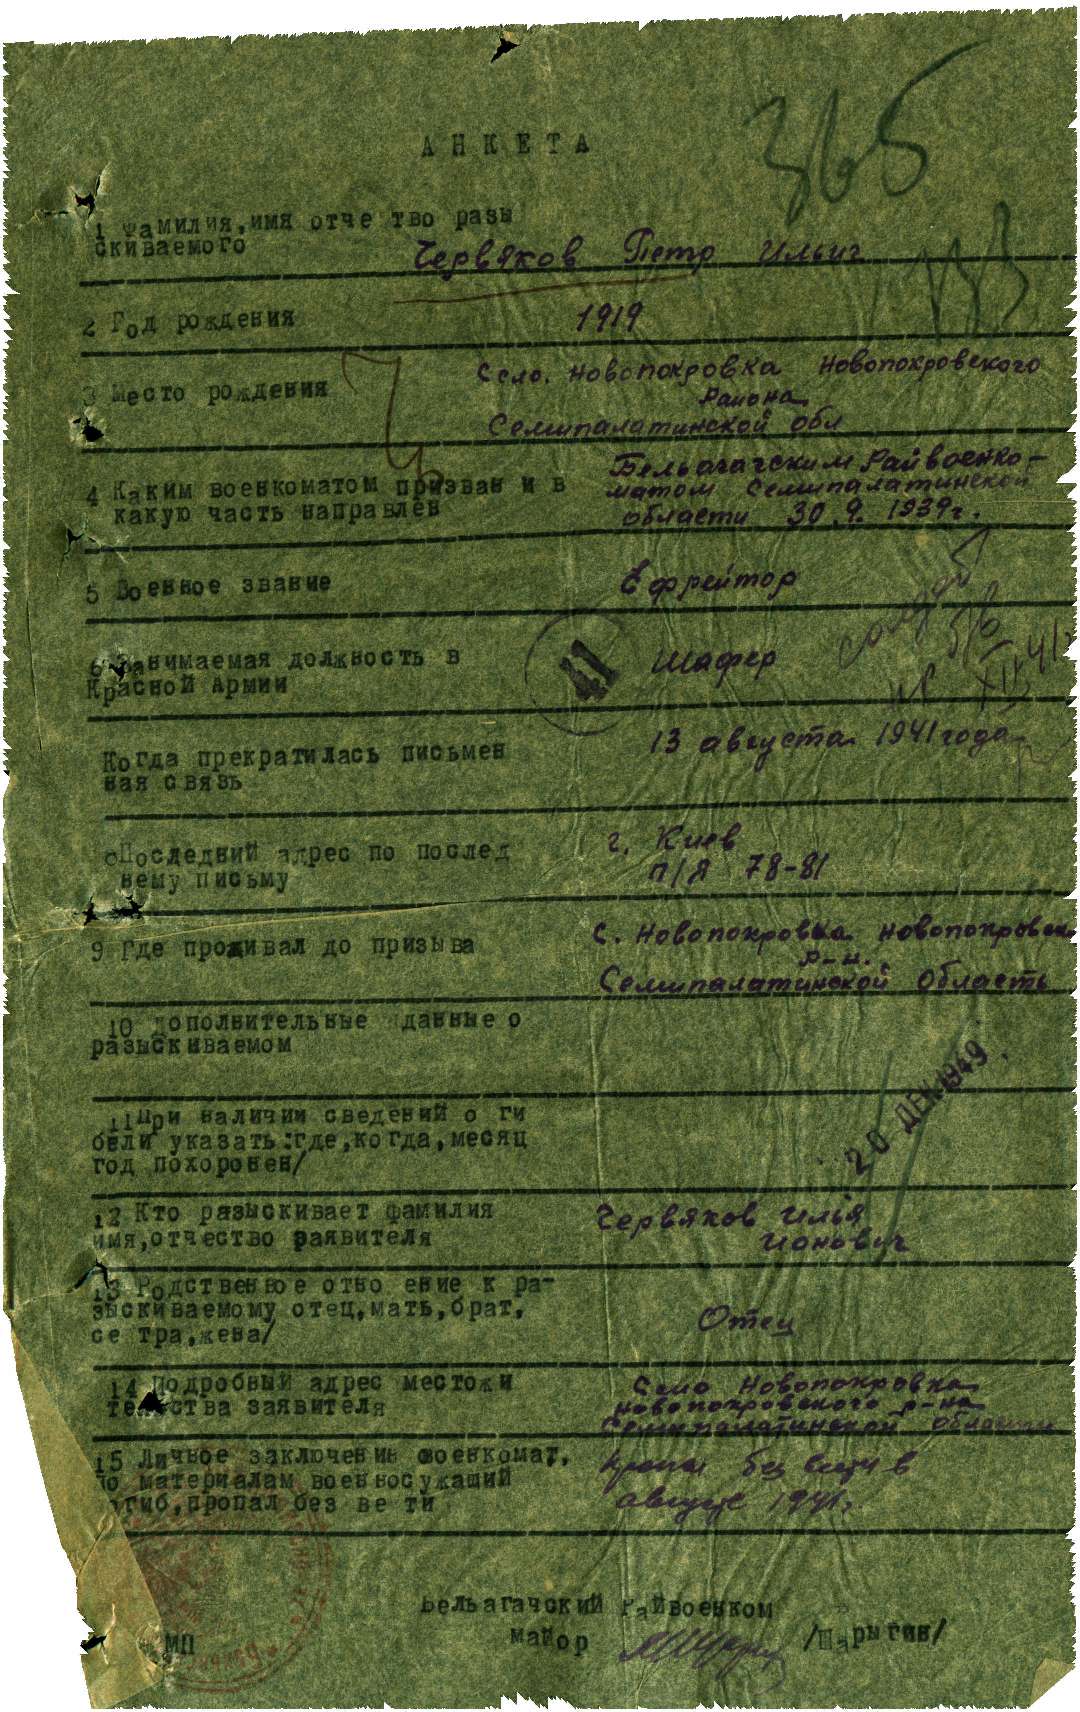 365
АНКЕТА
1 Фамилия,имя отче тво разы
скиваемого
Червяков Петр Ильич
2 Год рождения
1919
3 Место рождения
Село. Новопокровка Новопокровского
Района
Семипалатинской обл
4 Каким военкоматом призван и в
какую часть направлен
Бельагачским Райвоенко-
матом Семипалатинской
области 30.9. 1939г.
5 Военное звание
Ефрейтор
6 Занимаемая должность в
Красной Армии
41
Шафер
Когда прекратилась письмен
ная связь
13 августа 1941 года
Последний адрес по послед
нему письму
г. Киев
п/я 78-81
9 Где проживал до призыва
с. Новопокровка Новопокровск
р-н.
Семипалатинской область
10 дополнительные данные о
разыскиваемом
20 ДЕК 1949
11 При наличии сведений о ги
бели указать:где,когда,месяц
год похоронен/
12 Кто разыскивает фамилия
имя,отчество раявителя
Червяков Илья
Ионович
13 Родственное отно ение к ра-
зыскиваемому отец,мать,брат,
се тра,жена/
Отец
14 Подробный адрес местожи
тельства заявителя
Село Новопокровка
Новопокровского р-на
Семипалатинской области
15 Личное заключение военкомат,
по материалам военносужащий
погиб,пропал без ве ти
пропал без вести в
августе 1941г.
Бельагачский Райвоенком
майор /Шарыгин/
МП